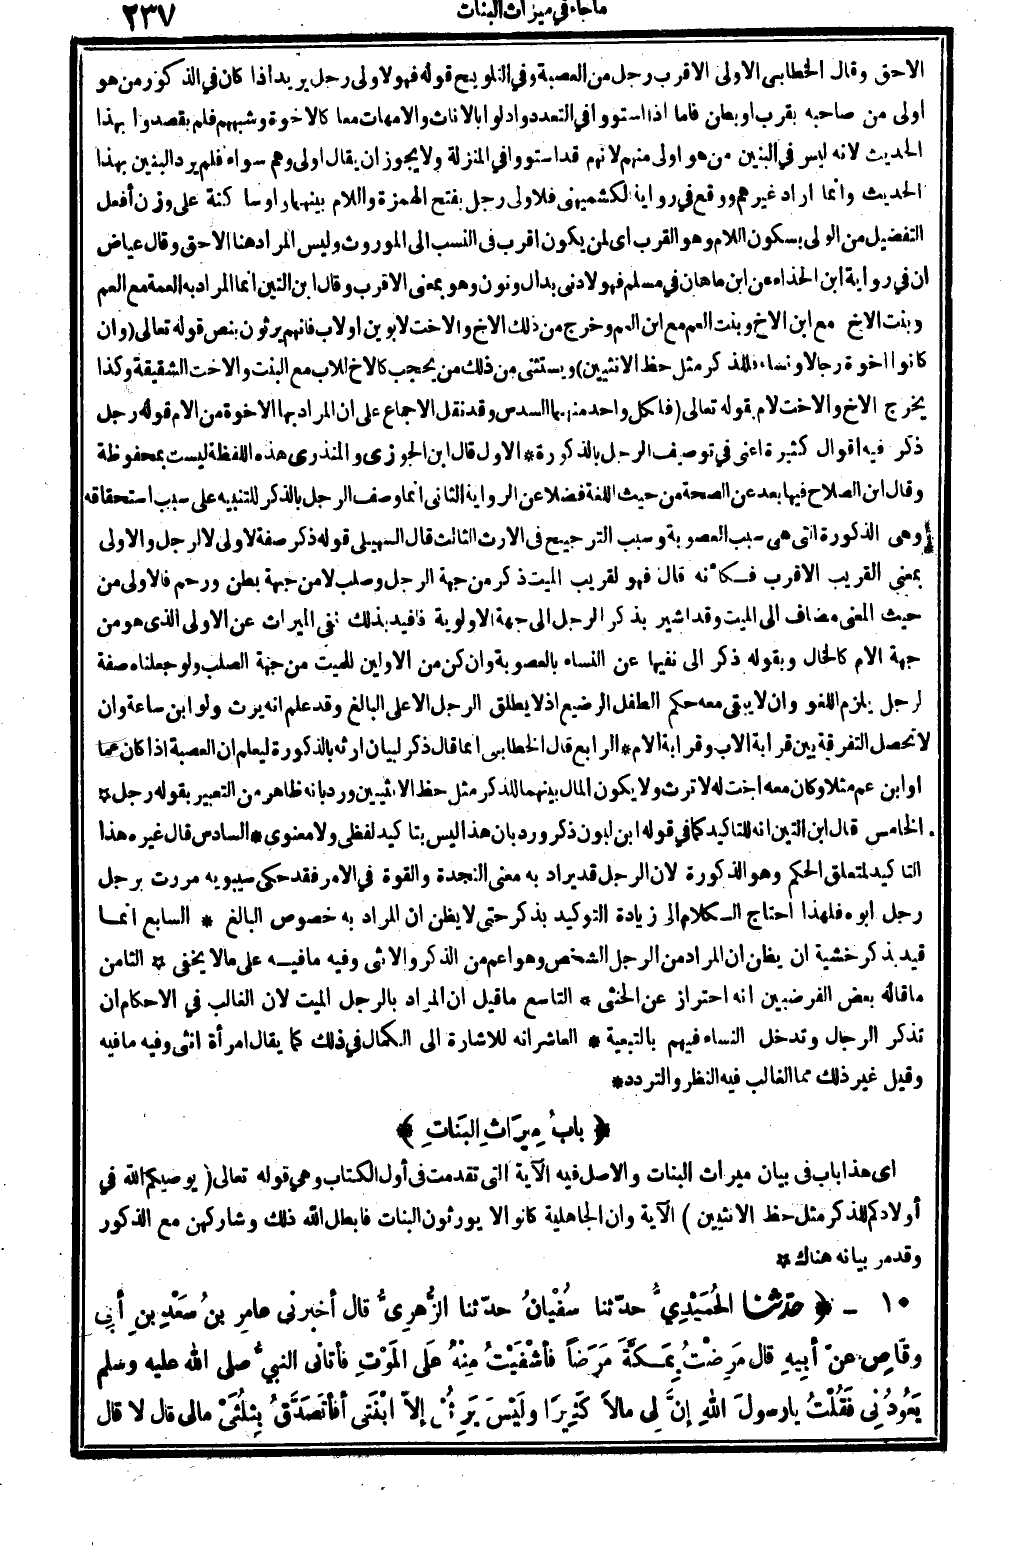 ما جاء في ميراث البنات
٢٣٧
الاحق وقال الخطابى الاولى الاقرب رجل من العصبة وفي التلويح قوله فهو لاولى رجل يريد اذا كان في الذكور من هو
اولى من صاحبه بقرب او بطن فاما اذا استووا في التعدد وادلوا بالاناث والامهات معا كالاخوة وشبههم فلم يقصدوا بهذا
الحديث لانه ليس في البنين من هو اولى منهم لانهم قد استووا في المنزلة ولا يجوز ان يقال اولى وهم سواء فلم يرد البنين بهذا
الحديث وانما اراد غيرهم ووقع في رواية الكشميهنى فلاولى رجل بفتح الهمزة واللام بينهما واو ساكنة على وزن أفعل
التفضيل من الولى بسكون اللام وهو القرب اى لمن يكون اقرب فى النسب الى الموروث وليس المراد هنا الاحق وقال عياض
ان في رواية ابن الحذاء عن ابن ماهان في مسلم فهو لادنى بدال ونون وهو بمعنى الاقرب وقال ابن التين انما المراد به العمة مع العم
وبنت الاخ مع ابن الاخ وبنت العم مع ابن العم وخرج من ذلك الاخ والاخت لابوين او لاب فانهم يرثون بنص قوله تعالى (وان
كانوا اخوة رجالا ونساء فللذكر مثل حظ الانثيين) ويستثنى من ذلك من يحجب كالاخ للاب مع البنت والاخت الشقيقة وكذا
يخرج الاخ والاخت لام بقوله تعالى (فلكل واحد منهما السدس وقد نقل الاجماع على ان المراد بها الاخوة من الام قوله رجل
ذكر فيه اقوال كثيرة اعنى في توصيف الرجل بالذكورة * الاول قال ابن الجوزى والمنذرى هذه اللفظة ليست بمحفوظة
وقال ابن الصلاح فيها بعد عن الصحة من حيث اللغة فضلا عن الرواية الثانى انما وصف الرجل بالذكر للتنبيه على سبب استحقاقه
وهى الذكورة التى هى سبب العصوبة وسبب الترجيح فى الارث الثالث قال السهيلى قوله ذكر صفة لاولى لا لرجل والاولى
بمعنى القريب الاقرب فكأنه قال فهو لقريب الميت ذكر من جهة الرجل وصلب لا من جهة بطن ورحم فالاولى من
حيث المعنى مضاف الى الميت وقد اشير بذكر الرجل الى جهة الاولوية فافيد بذلك نفى الميراث عن الاولى الذى هو من
جهة الام كالخال وبقوله ذكر الى نفيها عن النساء بالعصوبة وان كن من الاولين للميت من جهة الصلب ولو جعلناه صفة
لرجل يلزم اللغو وان لا يبقى معه حكم الطفل الرضيع اذ لا يطلق الرجل الا على البالغ وقد علم انه يرث ولو ابن ساعة وان
لا تحصل التفرقة بين قرابة الاب وقرابة الام * الرابع قال الخطابى انما قال ذكر لبيان ارثه بالذكورة ليعلم ان العصبة اذا كان عما
او ابن عم مثلا وكان معه اخت له لا ترث ولا يكون المال بينهما للذكر مثل حظ الانثيين ورد بانه ظاهر من التعبير بقوله رجل *
الخامس قال ابن التين انه للتاكيد كما في قوله ابن لبون ذكر ورد بان هذا ليس بتاكيد لفظى ولا معنوى * السادس قال غيره هذا
التاكيد لمتعلق الحكم وهو الذكورة لان الرجل قد يراد به معنى النجدة والقوة في الامر فقد حكى سيبويه مررت برجل
رجل ابوه فلهذا احتاج الكلام الى زيادة التوكيد بذكر حتى لا يظن ان المراد به خصوص البالغ * السابع انما
قيد بذكر خشية ان يظن ان المراد من الرجل الشخص وهو اعم من الذكر والانثى وفيه ما فيه على ما لا يخفى * الثامن
ما قاله بعض الفرضيين انه احتراز عن الخنثى * التاسع ما قيل ان المراد بالرجل الميت لان الغالب في الاحكام ان
تذكر الرجال وتدخل النساء فيهم بالتبعية * العاشر انه للاشارة الى الكمال في ذلك كما يقال امرأة انثى وفيه ما فيه
وقيل غير ذلك مما الغالب فيه النظر والتردد *
﴿ بابُ مِيرَاثِ البَنَاتِ ﴾
اى هذا باب فى بيان ميراث البنات والاصل فيه الآية التى تقدمت فى أول الكتاب وهي قوله تعالى (يوصيكم الله في
أولادكم للذكر مثل حظ الانثيين) الآية وان الجاهلية كانوا لا يورثون البنات فابطل الله ذلك وشاركهن مع الذكور
وقد مر بيانه هناك *
١٠ - ﴿ حدّثنا الحُمَيْدِيُّ حدّثنا سُفْيانُ حدّثنا الزُّهرِىُّ قال أخبرنى عامرِ بنُ سَعْدِ بنِ أَبِى
وقَّاصٍ عنْ أبيهِ قال مَرِضْتُ بِمَكَّةَ مَرَضاً فأشْفَيْتُ مِنْهُ عَلَى المَوْتِ فأتانى النبيُّ صلى الله عليه وسلم
يَعُودُنِى فَقُلْتُ يارسولَ اللهِ إنَّ لِى مالاً كَثِيرًا ولَيْسَ يَرِثُنِى إلاّ ابْنَتى أفأَتَصَدَّقُ بِثُلُثَىْ مالى قال لا قال